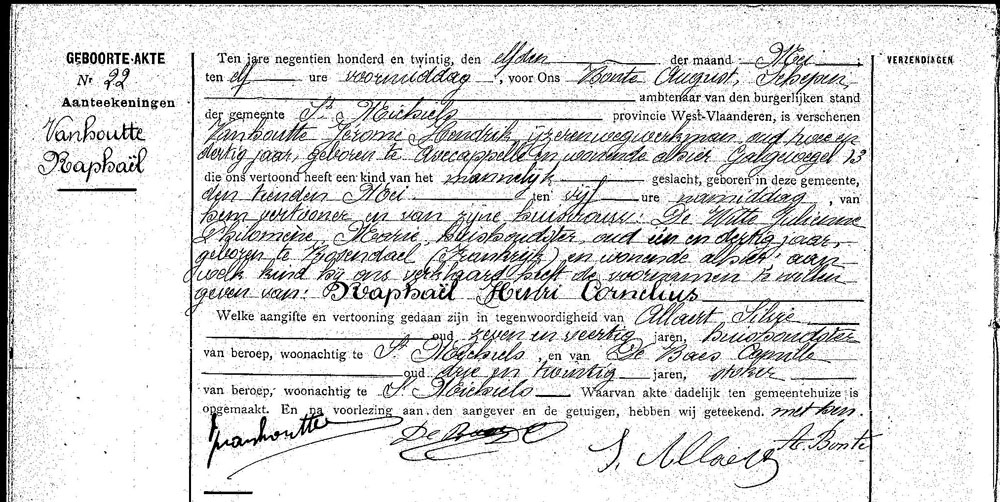 GEBOORTE-AKTE
Nr 22
Aanteekeningen
Vanhoutte
Raphaël
VERZENDINGEN
Ten jare negentien honderd en twintig, den elfden der maand Mei
ten elf ure voormiddag, voor Ons Bonte August, Schepen,
ambtenaar van den burgerlijken stand
der gemeente St Michiels provincie West-Vlaanderen, is verschenen
Vanhoutte Jerome Hendrik, ijzerenwegwerkman, oud twee en
dertig jaar, geboren te Avecappelle en wonende alhier Galgevogel 13
die ons vertoond heeft een kind van het mannelijk geslacht, geboren in deze gemeente,
den tienden Mei ten vijf ure namiddag, van
hem vertooner en van zijne huisvrouw: De Witte Julienne
Philomène Marie, huishoudster, oud één en dertig jaar,
geboren te Rosendael (Frankrijk) en wonende alhier aan
welk kind hij ons verklaard heeft de voornamen te willen
geven van: Raphaël Henri Cornelius
Welke aangifte en vertooning gedaan zijn in tegenwoordigheid van Allaert Silvie
oud zeven en veertig jaren, huishoudster
van beroep, woonachtig te St Michiels, en van De Baes Camille
oud drije en twintig jaren, stoker
van beroep, woonachtig te St Michiels Waarvan akte dadelijk ten gemeentehuize is
opgemaakt. En na voorlezing aan den aangever en de getuigen, hebben wij geteekend. met hen.
Jvanhoutte
S. Allaert
A. Bonte